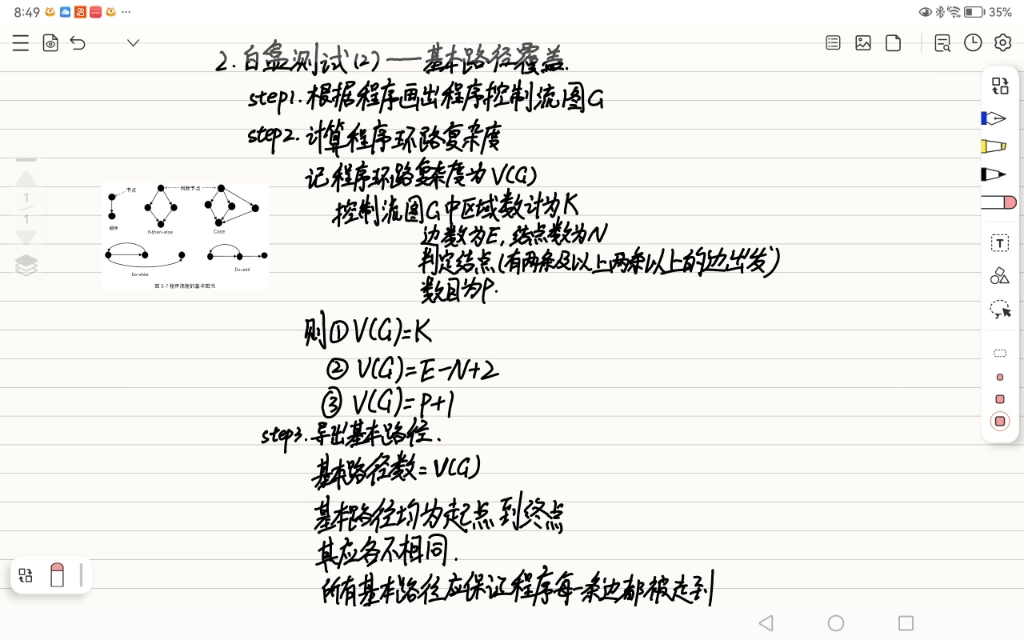 8:49
35%
2.白盒测试(2)——基本路径覆盖.
step1.根据程序画出程序控制流图G
step2.计算程序环路复杂度
记程序环路复杂度为V(G)
控制流图G中区域数计为K
边数为E,结点数为N
判定结点(有两条及以上两条以上的边出发)
数目为P.
节点
判断节点
顺序
If-then-else
Case
Do-while
Do-until
图 5-7 程序流程的基本图元
1
1
则①V(G)=K
②V(G)=E-N+2
③V(G)=P+1
step3.导出基本路径.
基本路径数=V(G)
基本路径均为起点到终点
其应各不相同.
所有基本路径应保证程序每一条边都被走到
T